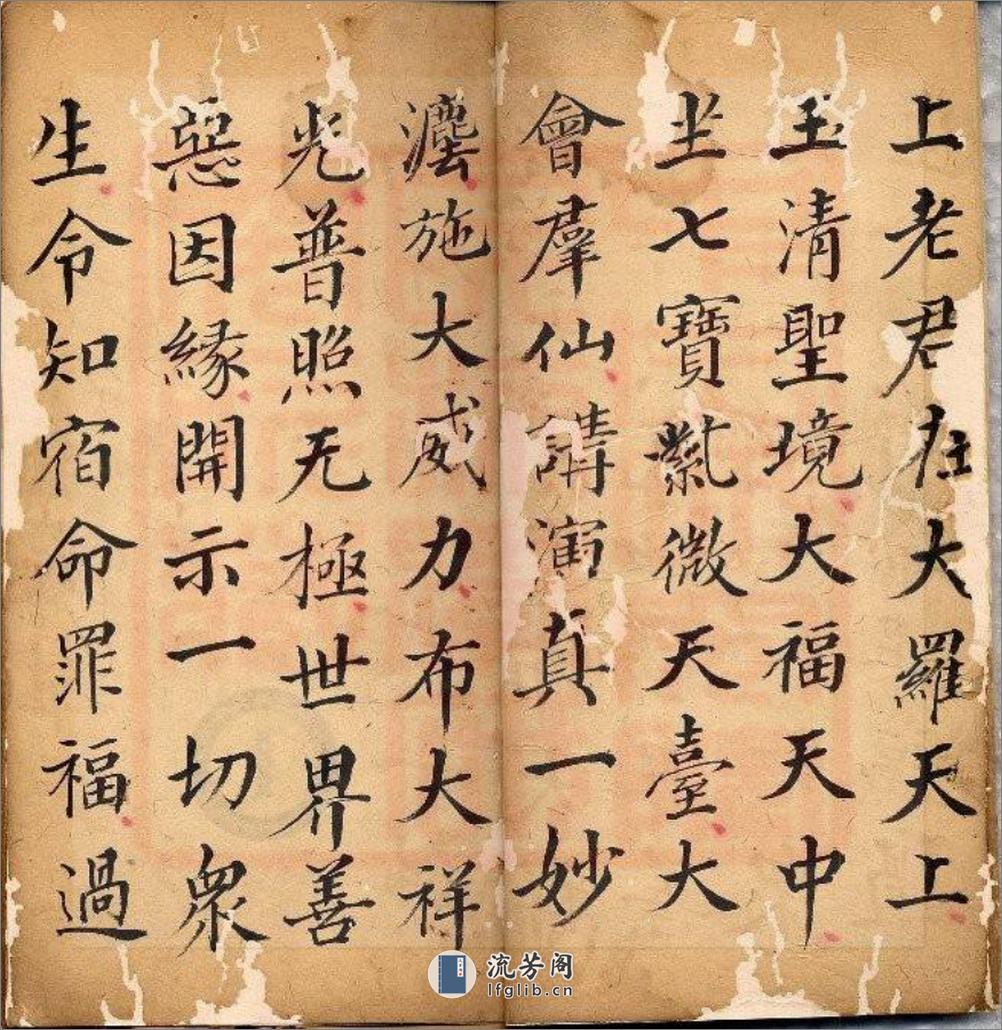 上老君在大羅天上
玉清聖境大福天中
坐七寳紫微天臺大
會羣仙講演真一妙
灋施大威力布大祥
光普照无極世界善
惡因縁開示一切衆
生令知宿命罪福過
流芳阁
lfglib.cn